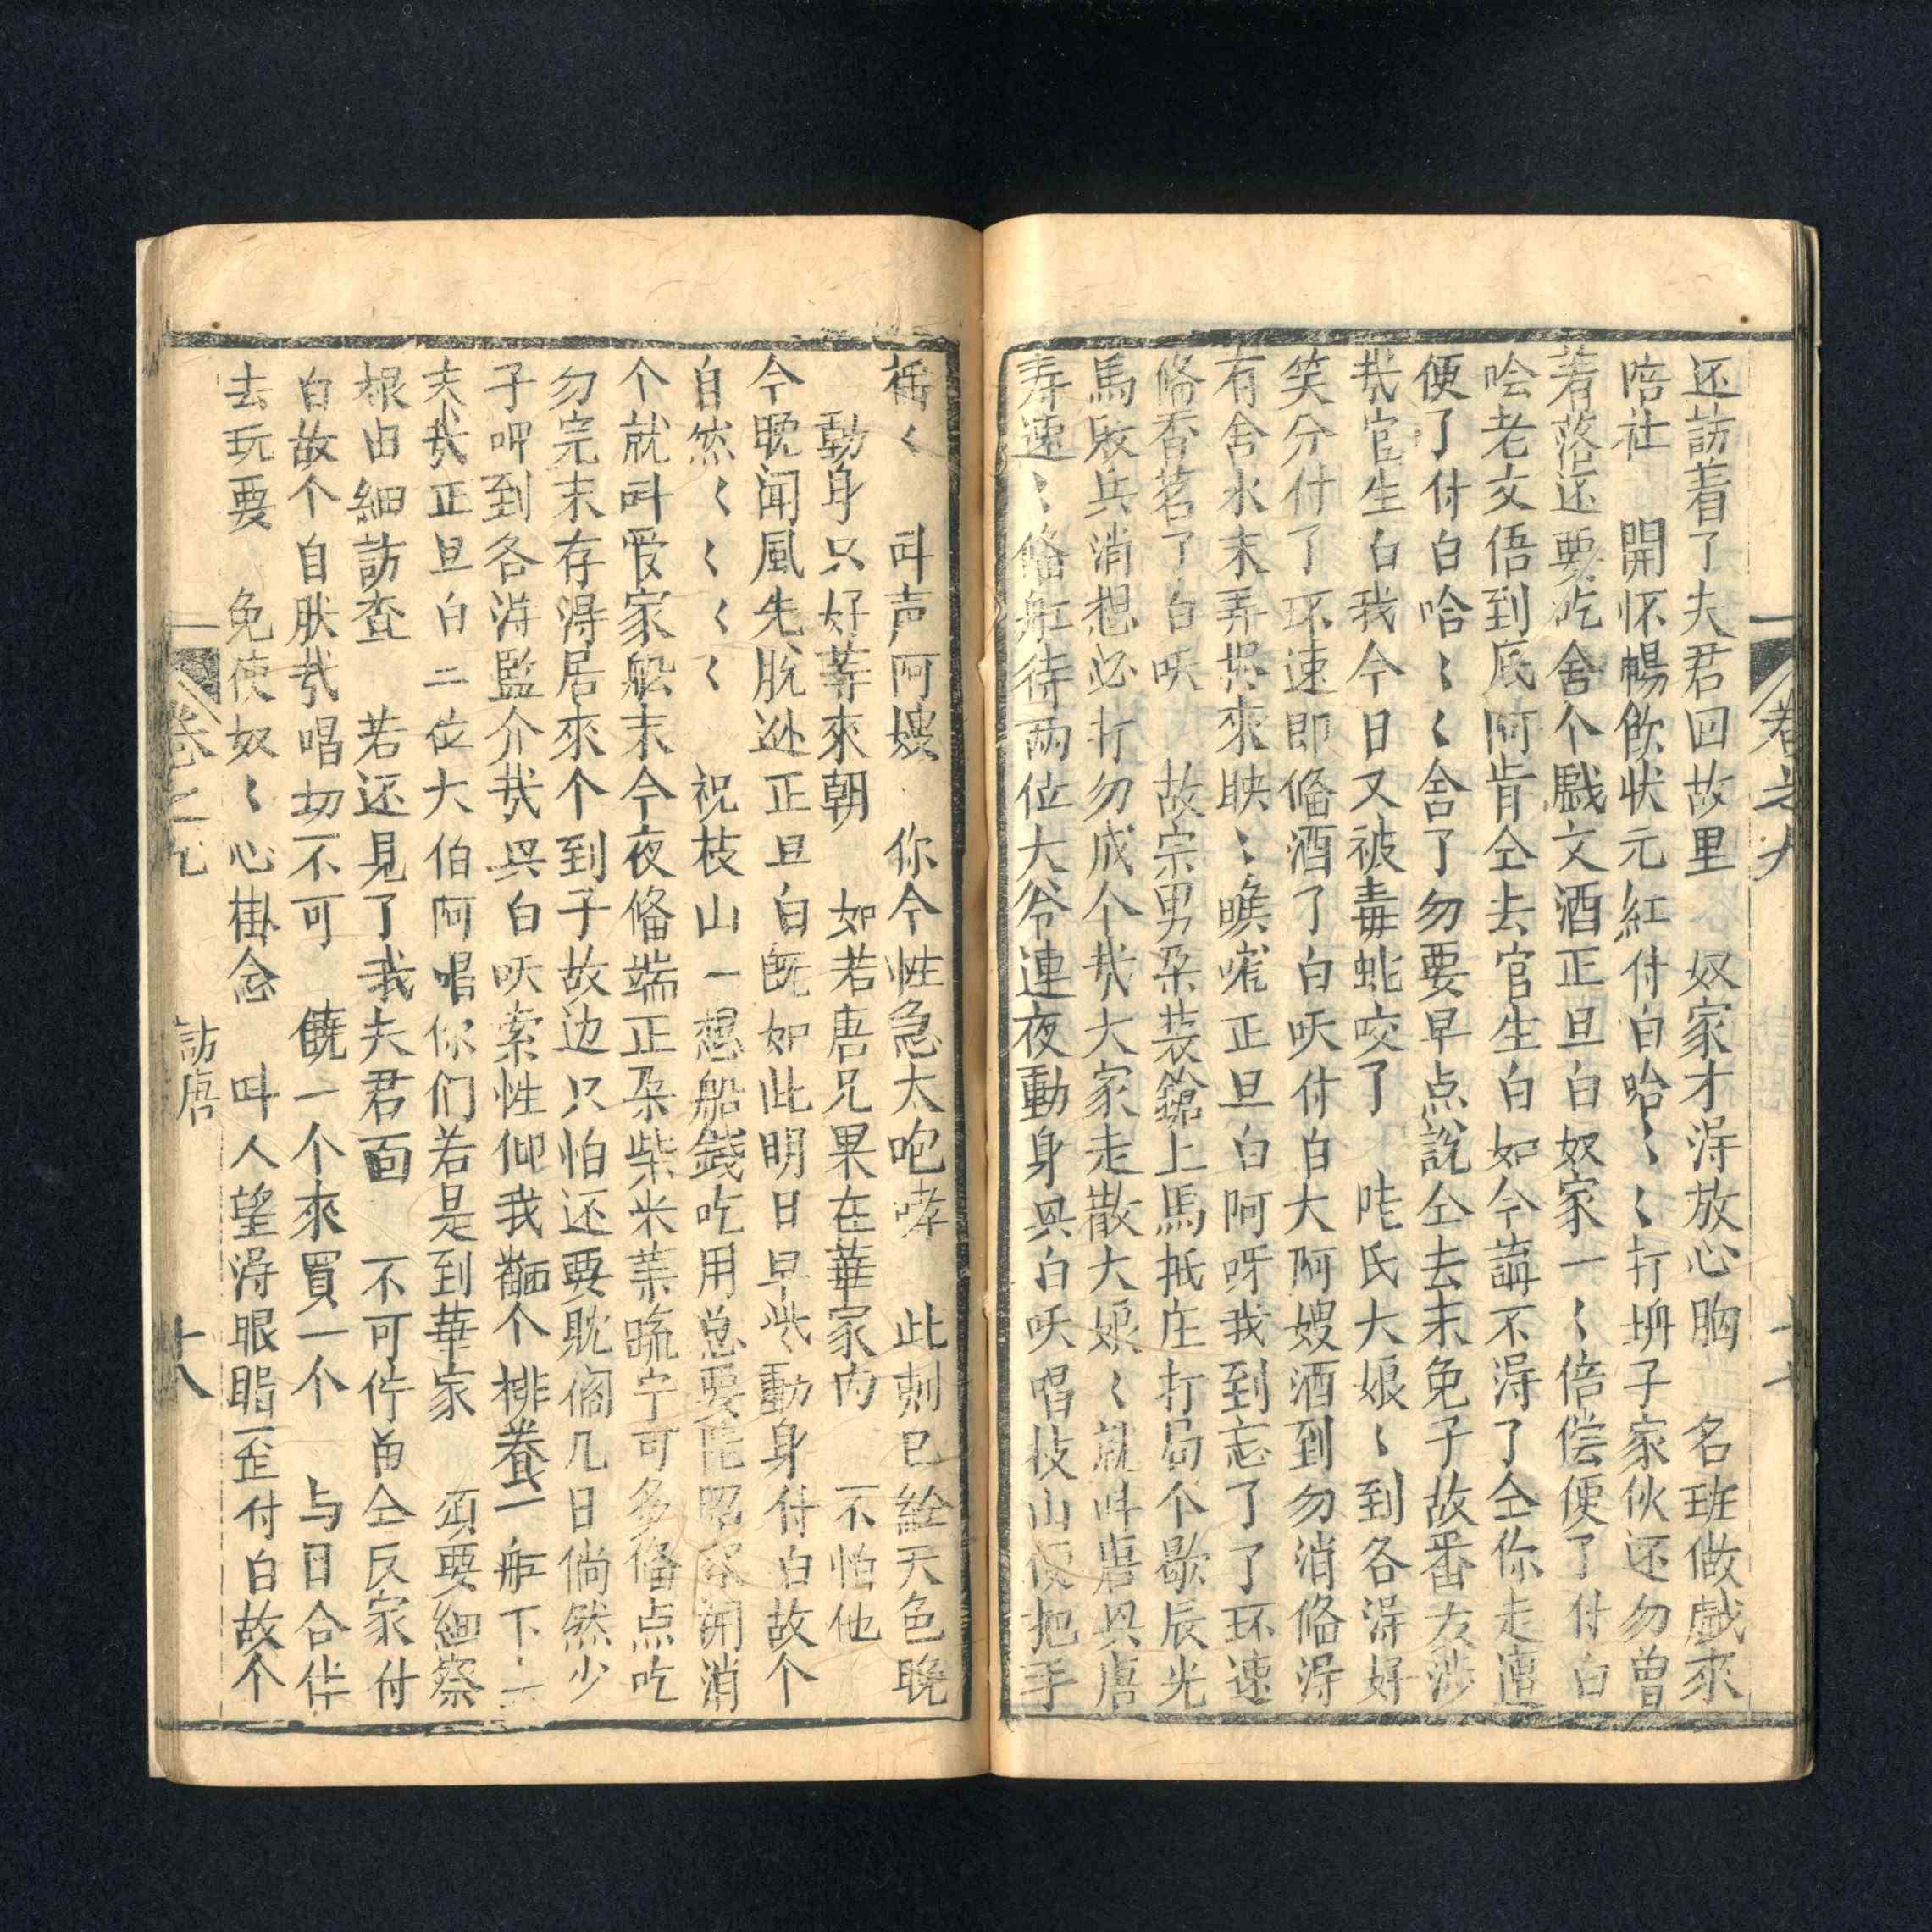 卷之九
十七
还訪着了夫君回故里　奴家才淂放心胸　名班做戯來
陪社　開怀暢飲状元紅付白哈〻〻打坍子家伙还勿曾
着落还要吃舍个戯文酒正旦白奴家一〻倍偿便了付白
哙老文俉到底阿肯仝去官生白如今講不淂了仝你走遭
便了付白哈〻〻舍了勿要早点説仝去末免子故番友涉
哉官生白我今日又被毒蚍咬了　哇氏大娘〻到各淂好
笑分付了环速即俻酒了白呅付白大阿嫂酒到勿消俻淂
有舍水末弄央來眏〻㬋嗺正旦白阿呀我到忘了了环速
俻香茗了白呅　故宗男朶装鎗上馬抵庄打局个歇辰光
馬𢼄兵消想必打勿成个哉大家走散大娘〻就呌唐與唐
寿速〻俻舡待两位大爷連夜動身與白呅唱枝山便把手
摇〻　呌声阿嫂　你今性急太咆哮　此刻已經天色晚
動身只好等來朝　如若唐兄果在華家内　不怕他
今晩闻風先脱逊正旦白既如此明日早些動身付白故个
自然〻〻〻〻　祝枝山一想船錢吃用总要陀昭容開消
个就呌爱家船末今夜俻端正朶柴米葉疏宁可多俻点吃
勿完末存淂居來个到子故边只怕还要耽阁几日倘然少
子呷到各淂監介哉與白呅索性仰我
末哉正旦白二位大伯阿唱你们若是到華家　須要細察
根由細訪查　若还見了我夫君面　不可佇畄仝反家付
白故个自肰哉唱切不可　僥一个來買一个　与日合伴
去玩耍　免使奴〻心掛念　呌人望淂眼睸歪付白故个
卷之九
訪唐
十八